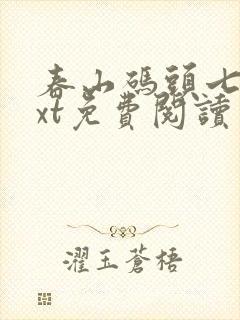 春山碼頭七
xt免費閱讀
濯玉蒼梧